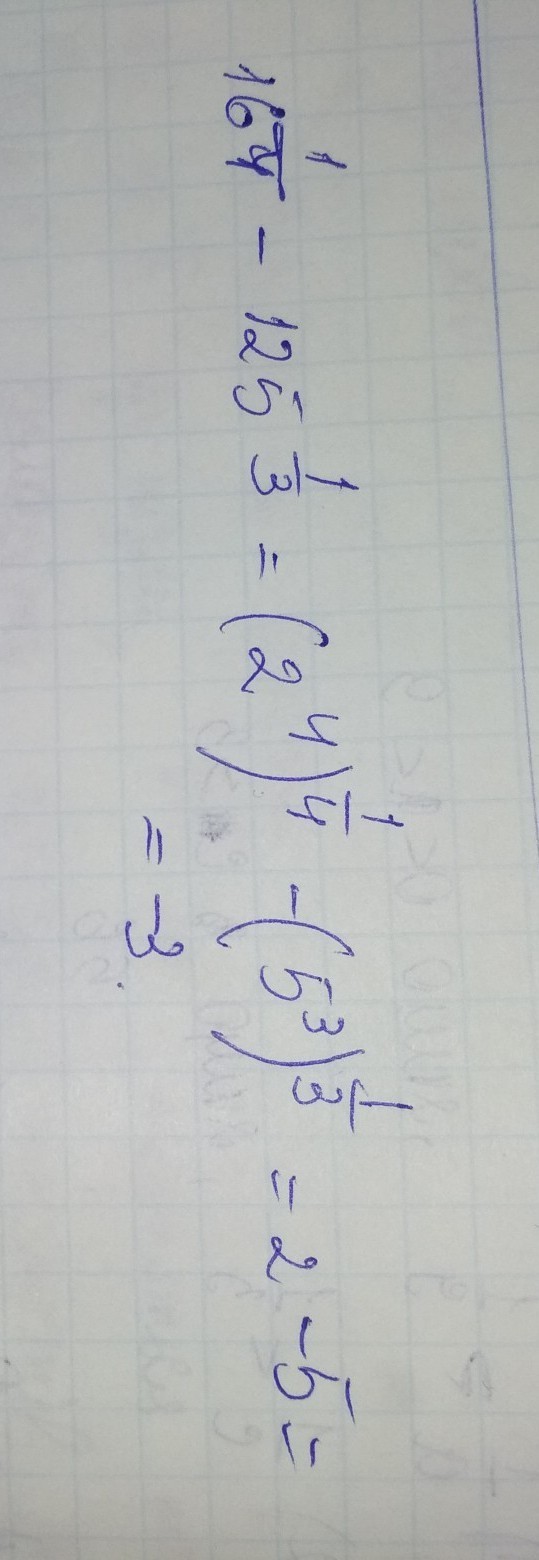 16^(1/4) - 125^(1/3) = (2^4)^(1/4) - (5^3)^(1/3) = 2 - 5 =
= -3